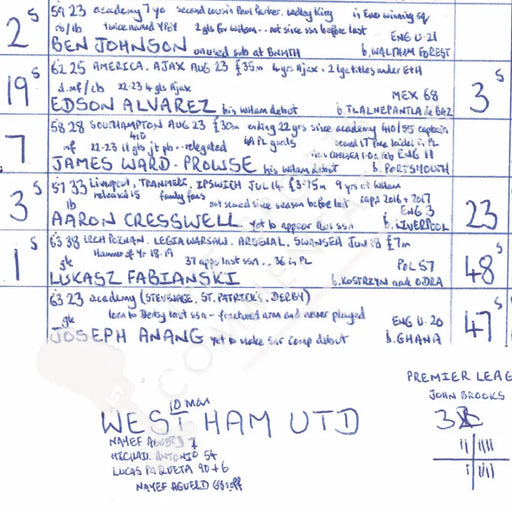 59 23 academy 7yo second cousin Paul Parker, Ledley King is Euro winning sq
rb/lb twice named YPOY 2 gls for W.Ham... not since ssn before last ENG U-21
2 S BEN JOHNSON unused sub at BNMTH b. WALTHAM FOREST
62 25 AMERICA, AJAX AUG 23 £35m 4 yrs Ajax. 2 lge titles under ETH
d.mf/cb 22-23 4 gls Ajax MEX 68
19 S EDSON ALVAREZ his W.Ham debut b. TLALNEPANTLA de BAZ 3 S
58 28 SOUTHAMPTON AUG 23 £30m ending 22 yrs since academy 410/55 captain
mf 22-23 11 gls jt pb.. relegated PL goals second FT free kicks in PL
7 JAMES WARD-PROWSE his W.Ham debut ENG 11 b. PORTSMOUTH
57 33 Liverpool, TRANMERE, IPSWICH JUL 14 £3.75m 9 yrs at W.Ham
lb released 15 not scored since season before last caps 2016 & 2017
ENG 3
3 S AARON CRESSWELL yet to appear this ssn b. LIVERPOOL 23
63 38 LECH POZNAN, LEGIA WARSAW, ARSENAL, SWANSEA JUN 18 £7m
Hammer of Yr 18-19
gk 37 apps last ssn.. 36 in PL POL 57
1 S LUKASZ FABIANSKI b. KOSTRZYN nad ODRA 48 S
63 23 academy (STEVENAGE, ST. PATRICK'S, DERBY)
gk loan to Derby last ssn - fractured arm and never played ENG U-20
JOSEPH ANANG yet to make snr comp debut b. GHANA 47 S
PREMIER LEAG
JOHN BROOKS
10 man
WEST HAM UTD
3
NAYEF AGUERD 7
MICHAIL ANTONIO 54
LUCAS PAQUETA 90+6
NAYEF AGUERD off